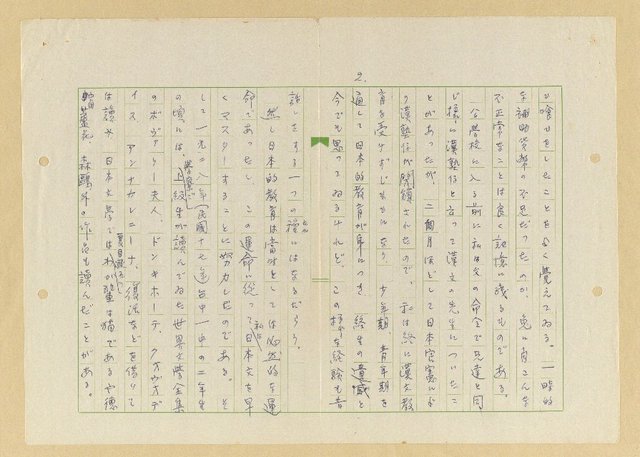 2.
喧嘩をしたことをよく覚えてゐる。一時的
な補助貨幣の不足だったのか、兎に角こんな
不正常なことは良く記憶に残るものである。
公学校に入る前に私は父の命令で兄達と同
じ様に漢塾仔と言って漢文の先生についたこ
とがあったが、二個月ほどして日本官憲から
漢塾仔が閉鎖されたので、私は終に漢文教
育を受けずじまひになり、少年期青年期を
通して日本的教育が身につき、終生の遺憾と
今でも思ってゐるけれど、この様な経験も昔
話しをする一つの種にはなるだらう。
然し日本的教育は当時としては必然的な運
命であったし、この運命に従って私は日本文を早
くマスターすることに努力したのである。そ
して一九二八年(民國十七年)台中一中の二年生
の頃には、上級生が読んでゐた世界文学全集
のボヴァリー夫人、ドンキホーテ、クオヴァデ
イス、アンナカレーニナ、復活などを借りて
は読み、日本文学では夏目漱石の吾が輩は猫であるや徳
富蘆花、森鷗外の作品も読んだことがある。